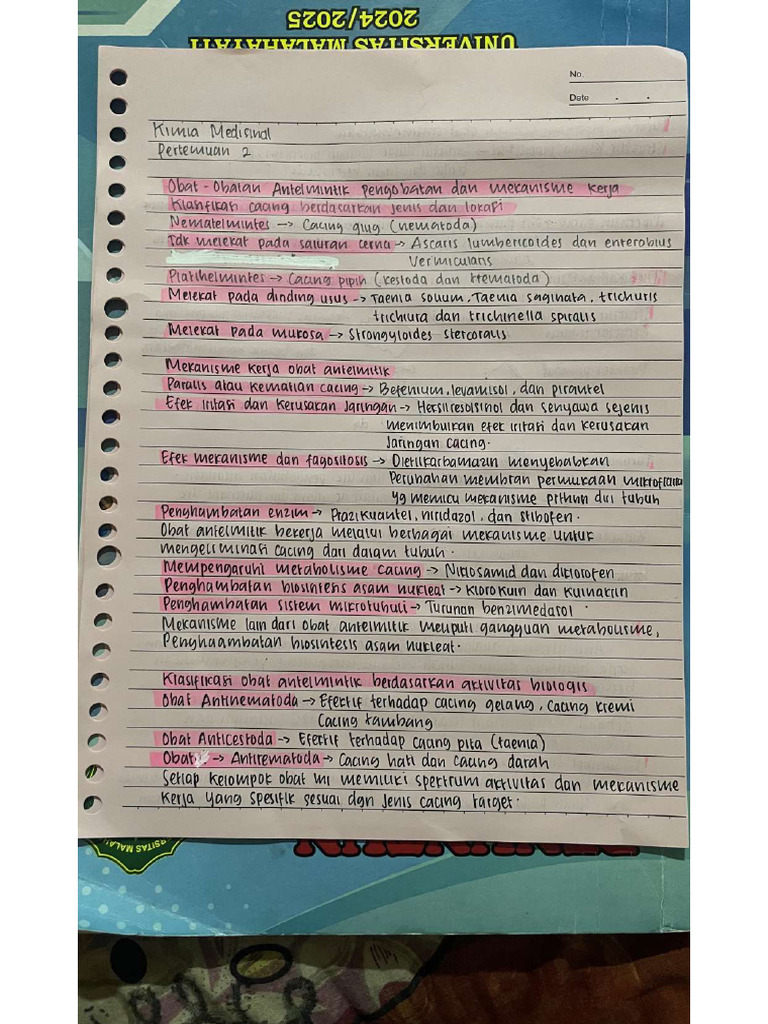 2024/2025
UNIVERSITAS MALAHAYATI
No.
Date
Kimia Medisinal
Pertemuan 2
Obat-Obatan Antelmintik Pengobatan dan mekanisme kerja
Klasifikasi cacing berdasarkan jenis dan lokasi
Nematelmintes → Cacing gilig (nematoda)
Tdk melekat pada saluran cerna → Ascaris lumbericoides dan enterobius
Vermicularis
Platihelmintes → Cacing pipih (kestoda dan trematoda)
Melekat pada dinding usus → Taenia solium, Taenia saginata, trichuris
trichiura dan trichinella spiralis
Melekat pada mukosa → Strongyloides stercoralis
Mekanisme kerja obat antelmitik
Paralis atau kematian cacing → Befenium, levamisol, dan pirantel
Efek iritasi dan kerusakan Jaringan → Heksilresolsinol dan senyawa sejenis
menimbulkan efek iritasi dan kerusakan
Jaringan cacing.
Efek mekanisme dan fagositosis → Dietilkarbamazin menyebabkan
Perubahan membran permukaan mikrofilaria
yg memicu mekanisme prthnn diri tubuh
Penghambatan enzim → Prazikuantel, niridazol, dan stibofen.
Obat antelmitik bekerja melalui berbagai mekanisme untuk
mengeliminasi cacing dari dalam tubuh.
Mempengaruhi metabolisme cacing → Niklosamid dan diklorofen
Penghambatan biosintens asam nukleat → Klorokuin dan kuinakrin
Penghambatan sistem mikrotubuli → Turunan benzimedasol
Mekanisme lain dari obat antelmitik meliputi gangguan metabolisme,
Penghaambatan biosintesis asam nukleat.
Klasifikasi obat antelmintik berdasarkan aktivitas biologis
Obat Antinematoda → Efektif terhadap cacing gelang, Cacing kremi
Cacing tambang
Obat Anticestoda → Efektif terhadap cacing pita (taenia)
Obat → Antirematoda → Cacing hati dan cacing darah
Setiap kelompok obat ini memiliki spektrum aktivitas dan mekanisme
kerja yang spesifik sesuai dgn jenis cacing target.